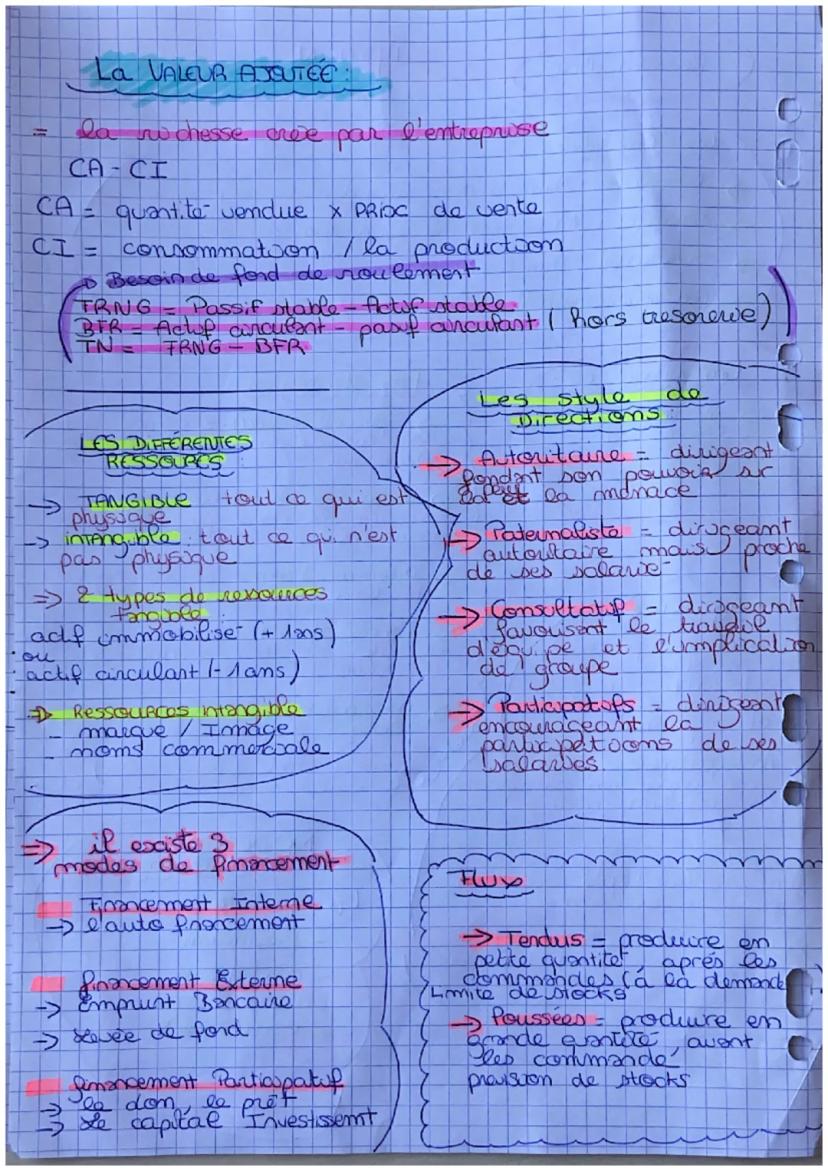 La VALEUR AJOUTÉE :
= la richesse crée par l'entreprise
CA - CI
CA = quantité vendue x PRIX de vente
CI = consommation / la production
→ Besoin de fond de roulement
FRNG = Passif stable - Actif stable
BFR = Actif circulant - passif circulant ( hors tresorerie )
TN = FRNG - BFR
LES DIFFÉRENTES
RESSOURCES
→ TANGIBLE tout ce qui est
physique
→ intangible : tout ce qui n'est
pas physique
⇒ 2 types de ressources
tangible :
actif immobilisé (+ 1ans)
ou
actif circulant (- 1ans)
⇒ Ressources intangible
- marque / Image
- noms commerciale
Les style de
Directions
→ Autoritaire = dirigeant
fondant son pouvoir sr
la peur et la menace
→ Paternaliste = dirigeant
autoritaire mais proche
de ses salarié
→ Consultatif = dirigeant
favorisent le travail
d'équipe et l'implication
de groupe
→ Participatifs = dirigeant
encourageant la
participations de ses
salariés.
⇒ il existe 3
modes de financement
Financement Interne
→ l'auto financement
financement Externe
→ Emprunt Bancaire
→ Levée de fond
financement Participatif
→ le don, le prêt
→ le capital Investissemt
Flux
→ Tendus = produire en
petite quantité, aprés les
commandes (à la demande
Limite de stocks
→ Poussées = produire en
grande quantité, avant
les commande,
prévision de stocks